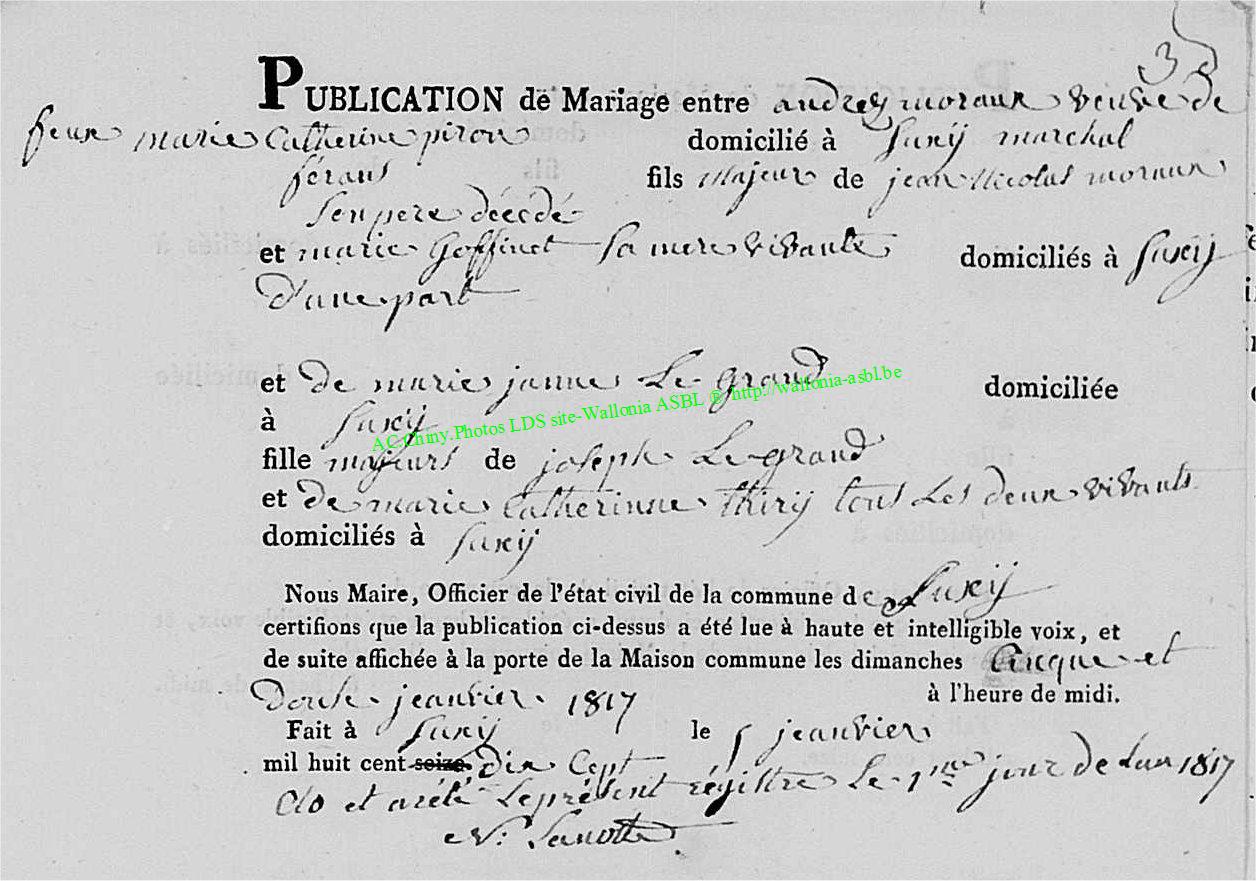 3
PUBLICATION de Mariage entre andrez moraux veuve de
feux marie Catherine piron domicilié à Suxÿ marchal
férans fils Majeur de jean Nicolas moraux
Son pere décédé
et marie Goffinet Sa mere vivante domiciliés à Suxÿ
d'une part
et de marie janne Le grand domiciliée
à Suxÿ
AC.Chiny.Photos LDS site-Wallonia ASBL @ http://wallonia-asbl.be
fille majeurs de joseph Le grand
et de marie Catherinne thirÿ tous Les deux vivants
domiciliés à Suxÿ
Nous Maire, Officier de l'état civil de la commune de Suxÿ
certifions que la publication ci-dessus a été lue à haute et intelligible voix, et
de suite affichée à la porte de la Maison commune les dimanches Cincque et
Douse jeanvier 1817 à l'heure de midi.
Fait à Suxÿ le 5 jeanvier
mil huit cent seize dix Cept
Clo et areté Le présent régistre Le 1er jour de Lan 1817